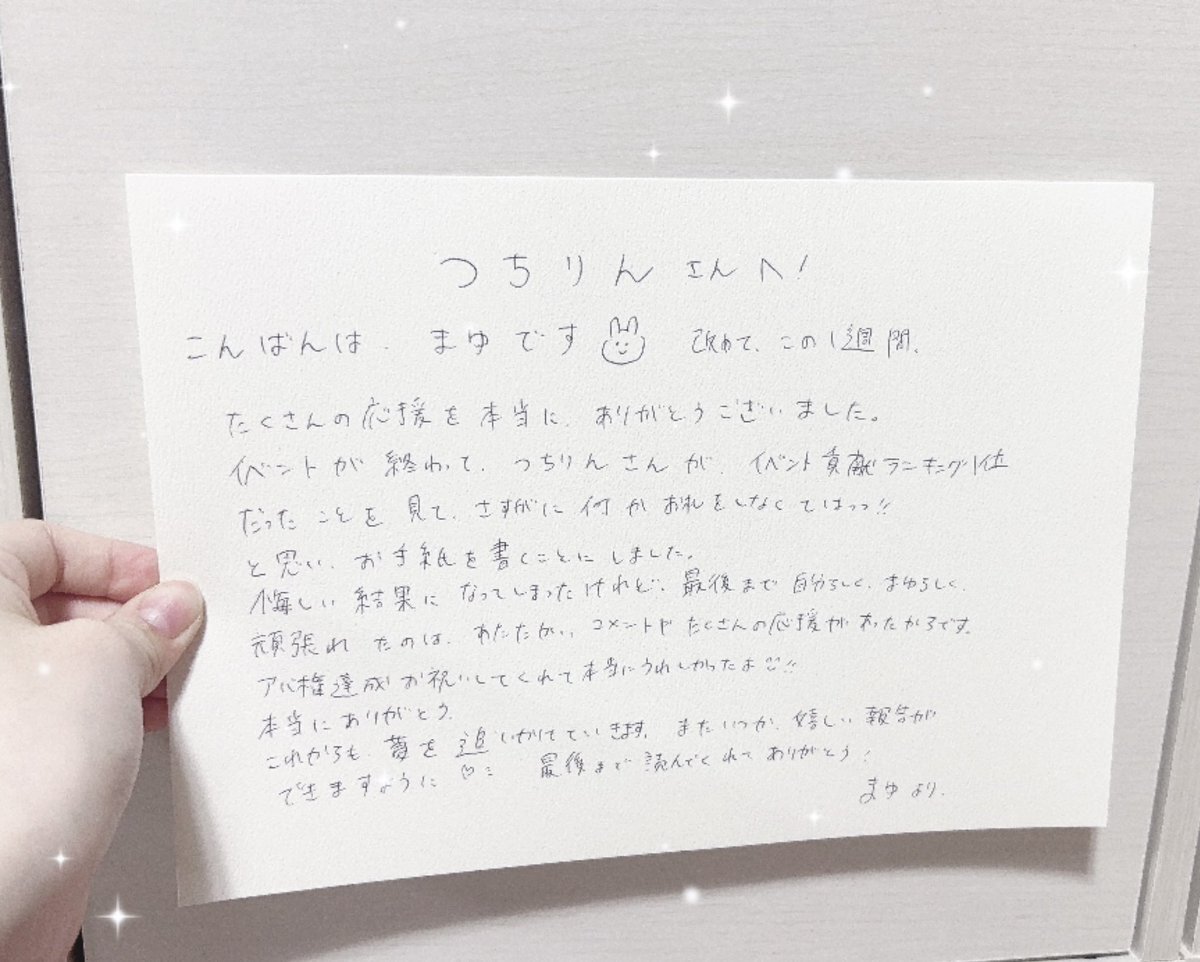 つちりんさんへ!
こんばんは、まゆです 改めて、この1週間、
たくさんの応援を本当に、ありがとうございました。
イベントが終わって、つちりんさんが、イベント貢献ランキング1位
だったことを見て、さすがに何かお礼をしなくてはっっ!!
と思い、お手紙を書くことにしました。
悔しい結果になってしまったけれど、最後まで自分らしく、まゆらしく、
頑張れたのは、あたたかいコメントやたくさんの応援があったからです。
アバ権達成お祝いしてくれて本当にうれしかったよ!!
本当にありがとう。
これからも、夢を追いかけていきます。またいつか、嬉しい報告が
できますように♡ 最後まで読んでくれてありがとう!
まゆより.